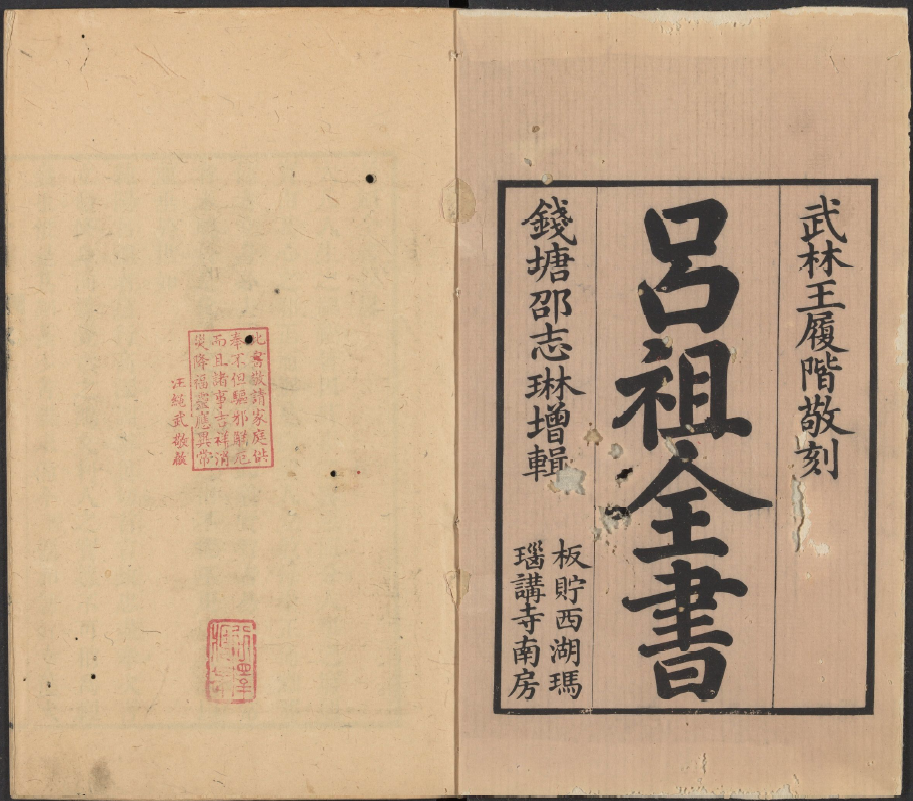 武林王履階敬刻
呂祖全書
錢塘邵志琳增輯
板貯西湖瑪
瑙講寺南房
此書敬請家庭供
奉不但驅邪關厄
而且諸事吉祥消
災降福靈應異常
汪繩武敬啟